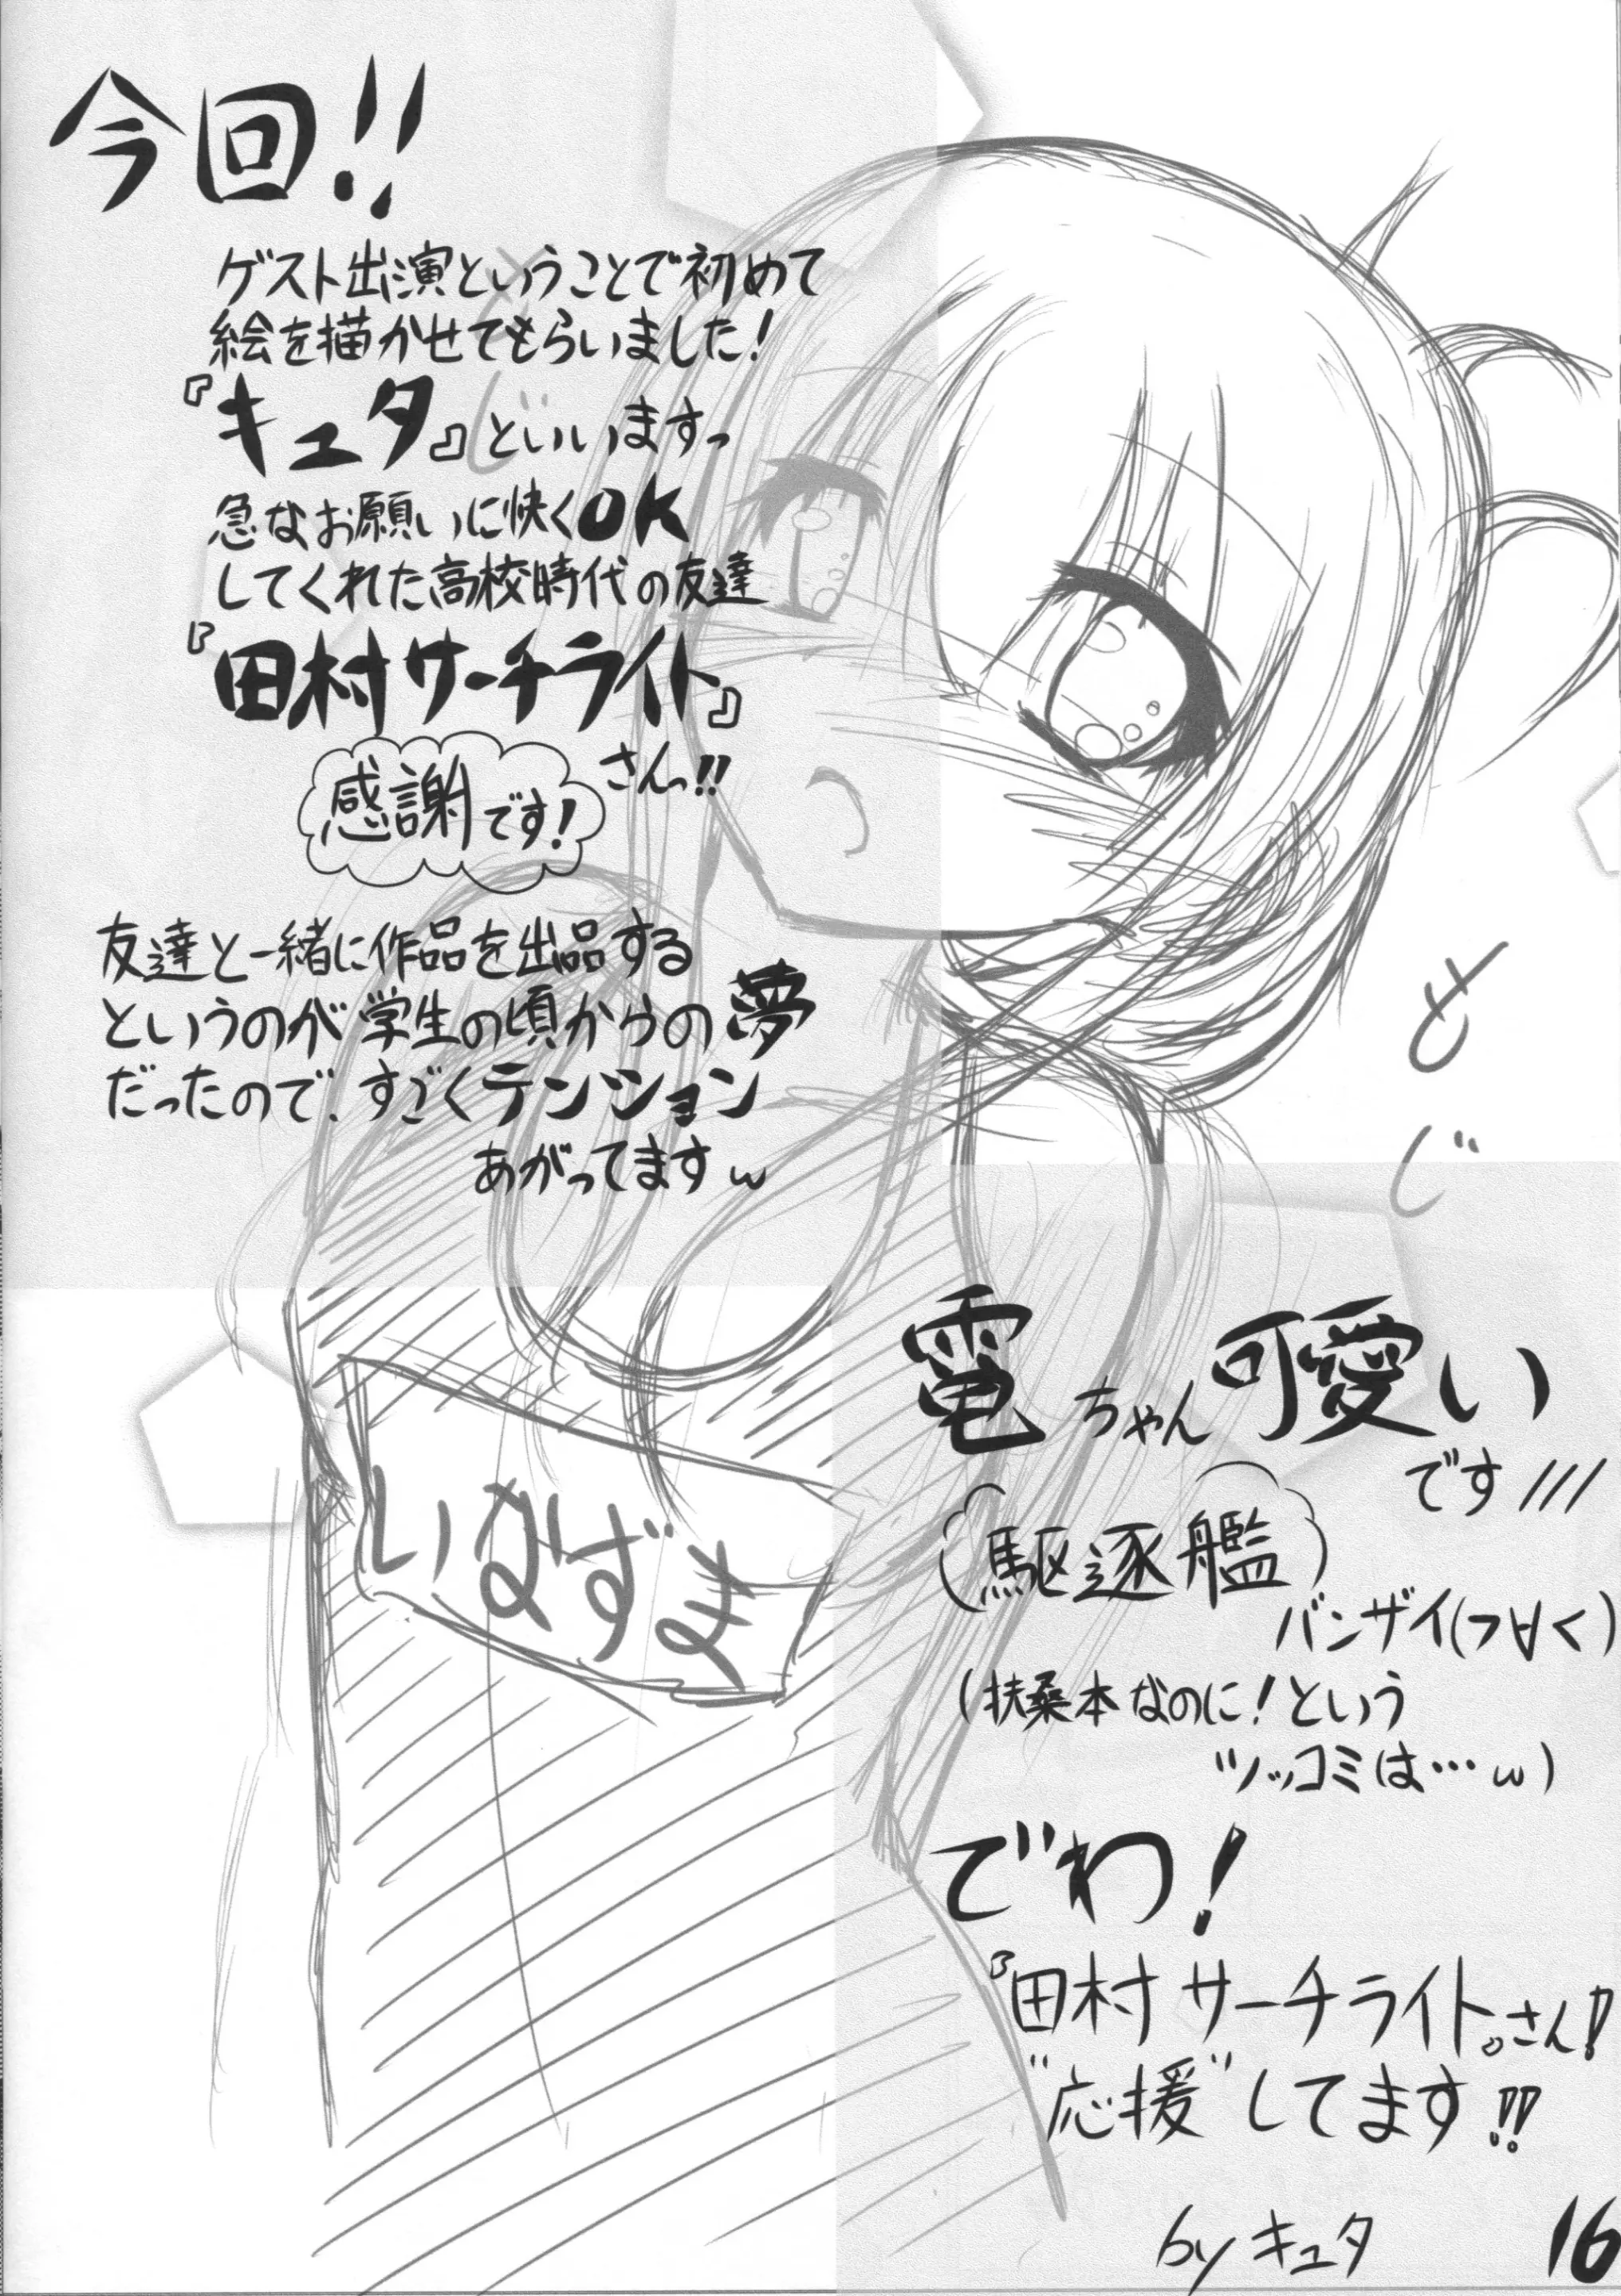 今回!!
ゲスト出演ということで初めて
絵を描かせてもらいました!
『キュタ』といいますっ
急なお願いに快くOK
してくれた高校時代の友達
『田村サーチライト』
さんっ!!
感謝です!
友達と一緒に作品を出品する
というのが学生の頃からの夢
だったので、すごくテンション
あがってますw
もじ
もじ
いなずま
電ちゃん可愛い
です///
駆逐艦
バンザイ(つ∀く)
(扶桑本なのに!という
ツッコミは…w)
でわ!
『田村サーチライト』さん!
"応援"してます!!
byキュタ
16